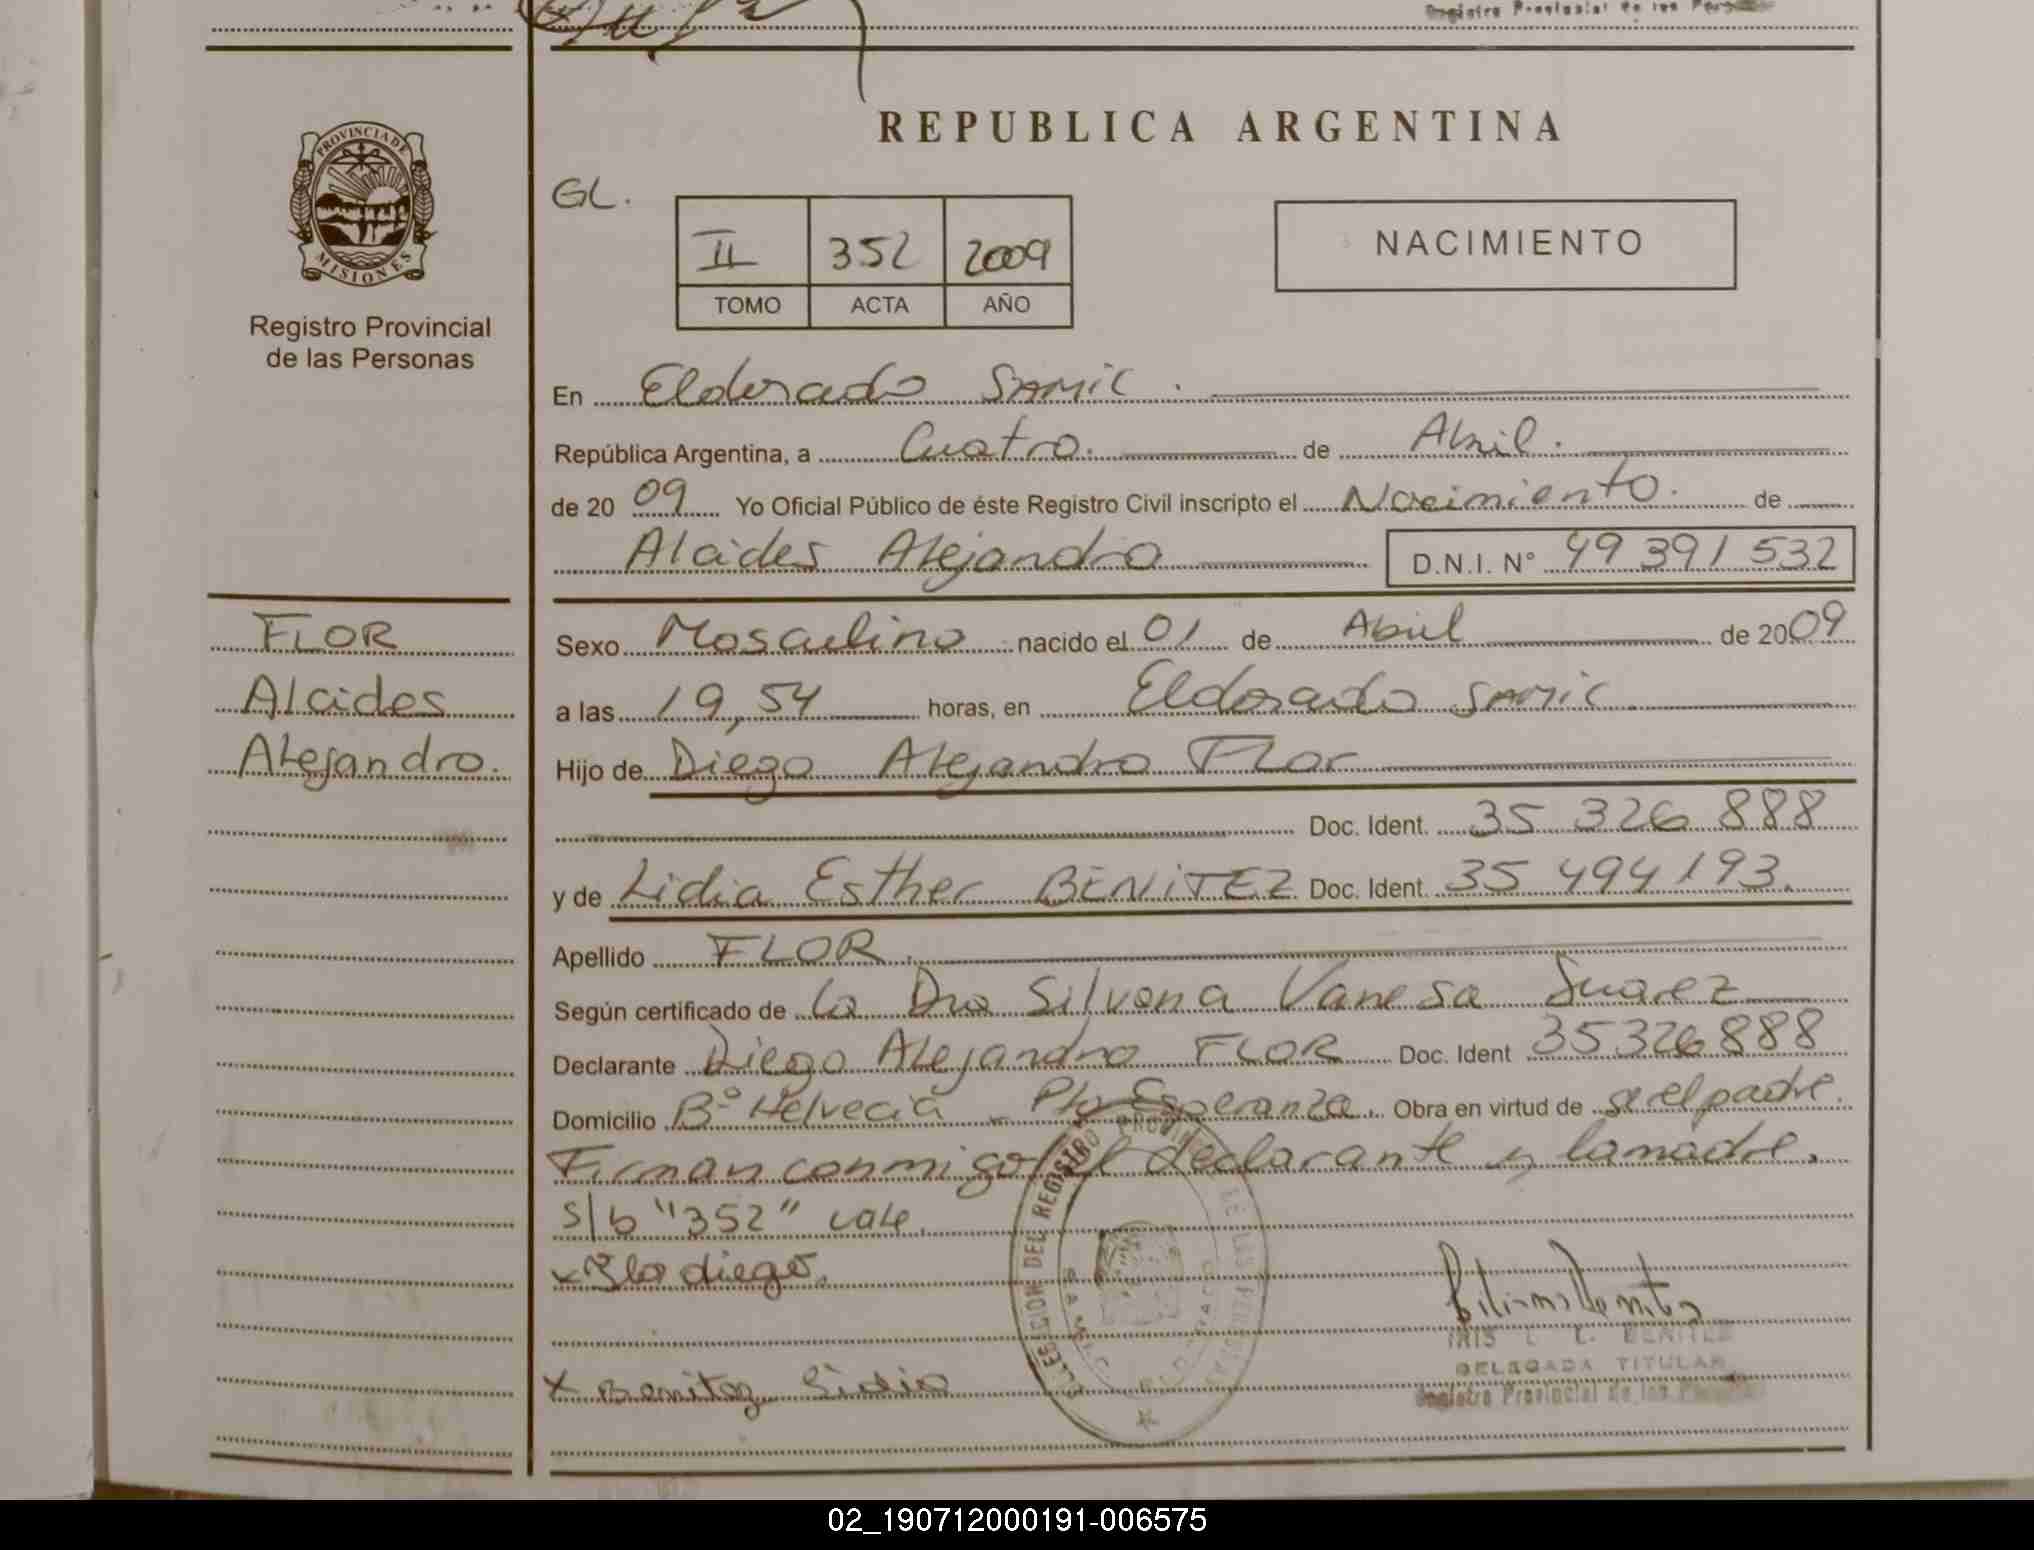 Registro Provincial de las Personas
REPUBLICA ARGENTINA
PROVINCIA DE
MISIONES
Registro Provincial
de las Personas
GL.
II 352 2009
TOMO ACTA AÑO
NACIMIENTO
En Eldorado SAMIC.
República Argentina, a Cuatro. de Abril.
de 2009 Yo Oficial Público de éste Registro Civil inscripto el Nacimiento. de
Alcides Alejandro D.N.I. N° 49 391 532
FLOR
Alcides
Alejandro.
Sexo Masculino nacido el 01 de Abril de 2009
a las 19,54 horas, en Eldorado SAMIC
Hijo de Diego Alejandro Flor
Doc. Ident. 35 326 888
y de Lidia Esther BENITEZ Doc. Ident. 35 494 193.
Apellido FLOR.
Según certificado de la Dra Silvana Vanesa Suarez
Declarante Diego Alejandro FLOR Doc. Ident 35326888
Domicilio B° Helvecia - Pto Esperanza. Obra en virtud de ser el padre.
Firman conmigo el declarante y la madre.
s/b "352" vale.
x Flo diego
x Benitez Lidia
DELEGACION DEL REGISTRO PROVINCIAL DE LAS PERSONAS
SAMIC ELDORADO
IRIS L. L. BENITEZ
DELEGADA TITULAR
Registro Provincial de las Personas
02_190712000191-006575